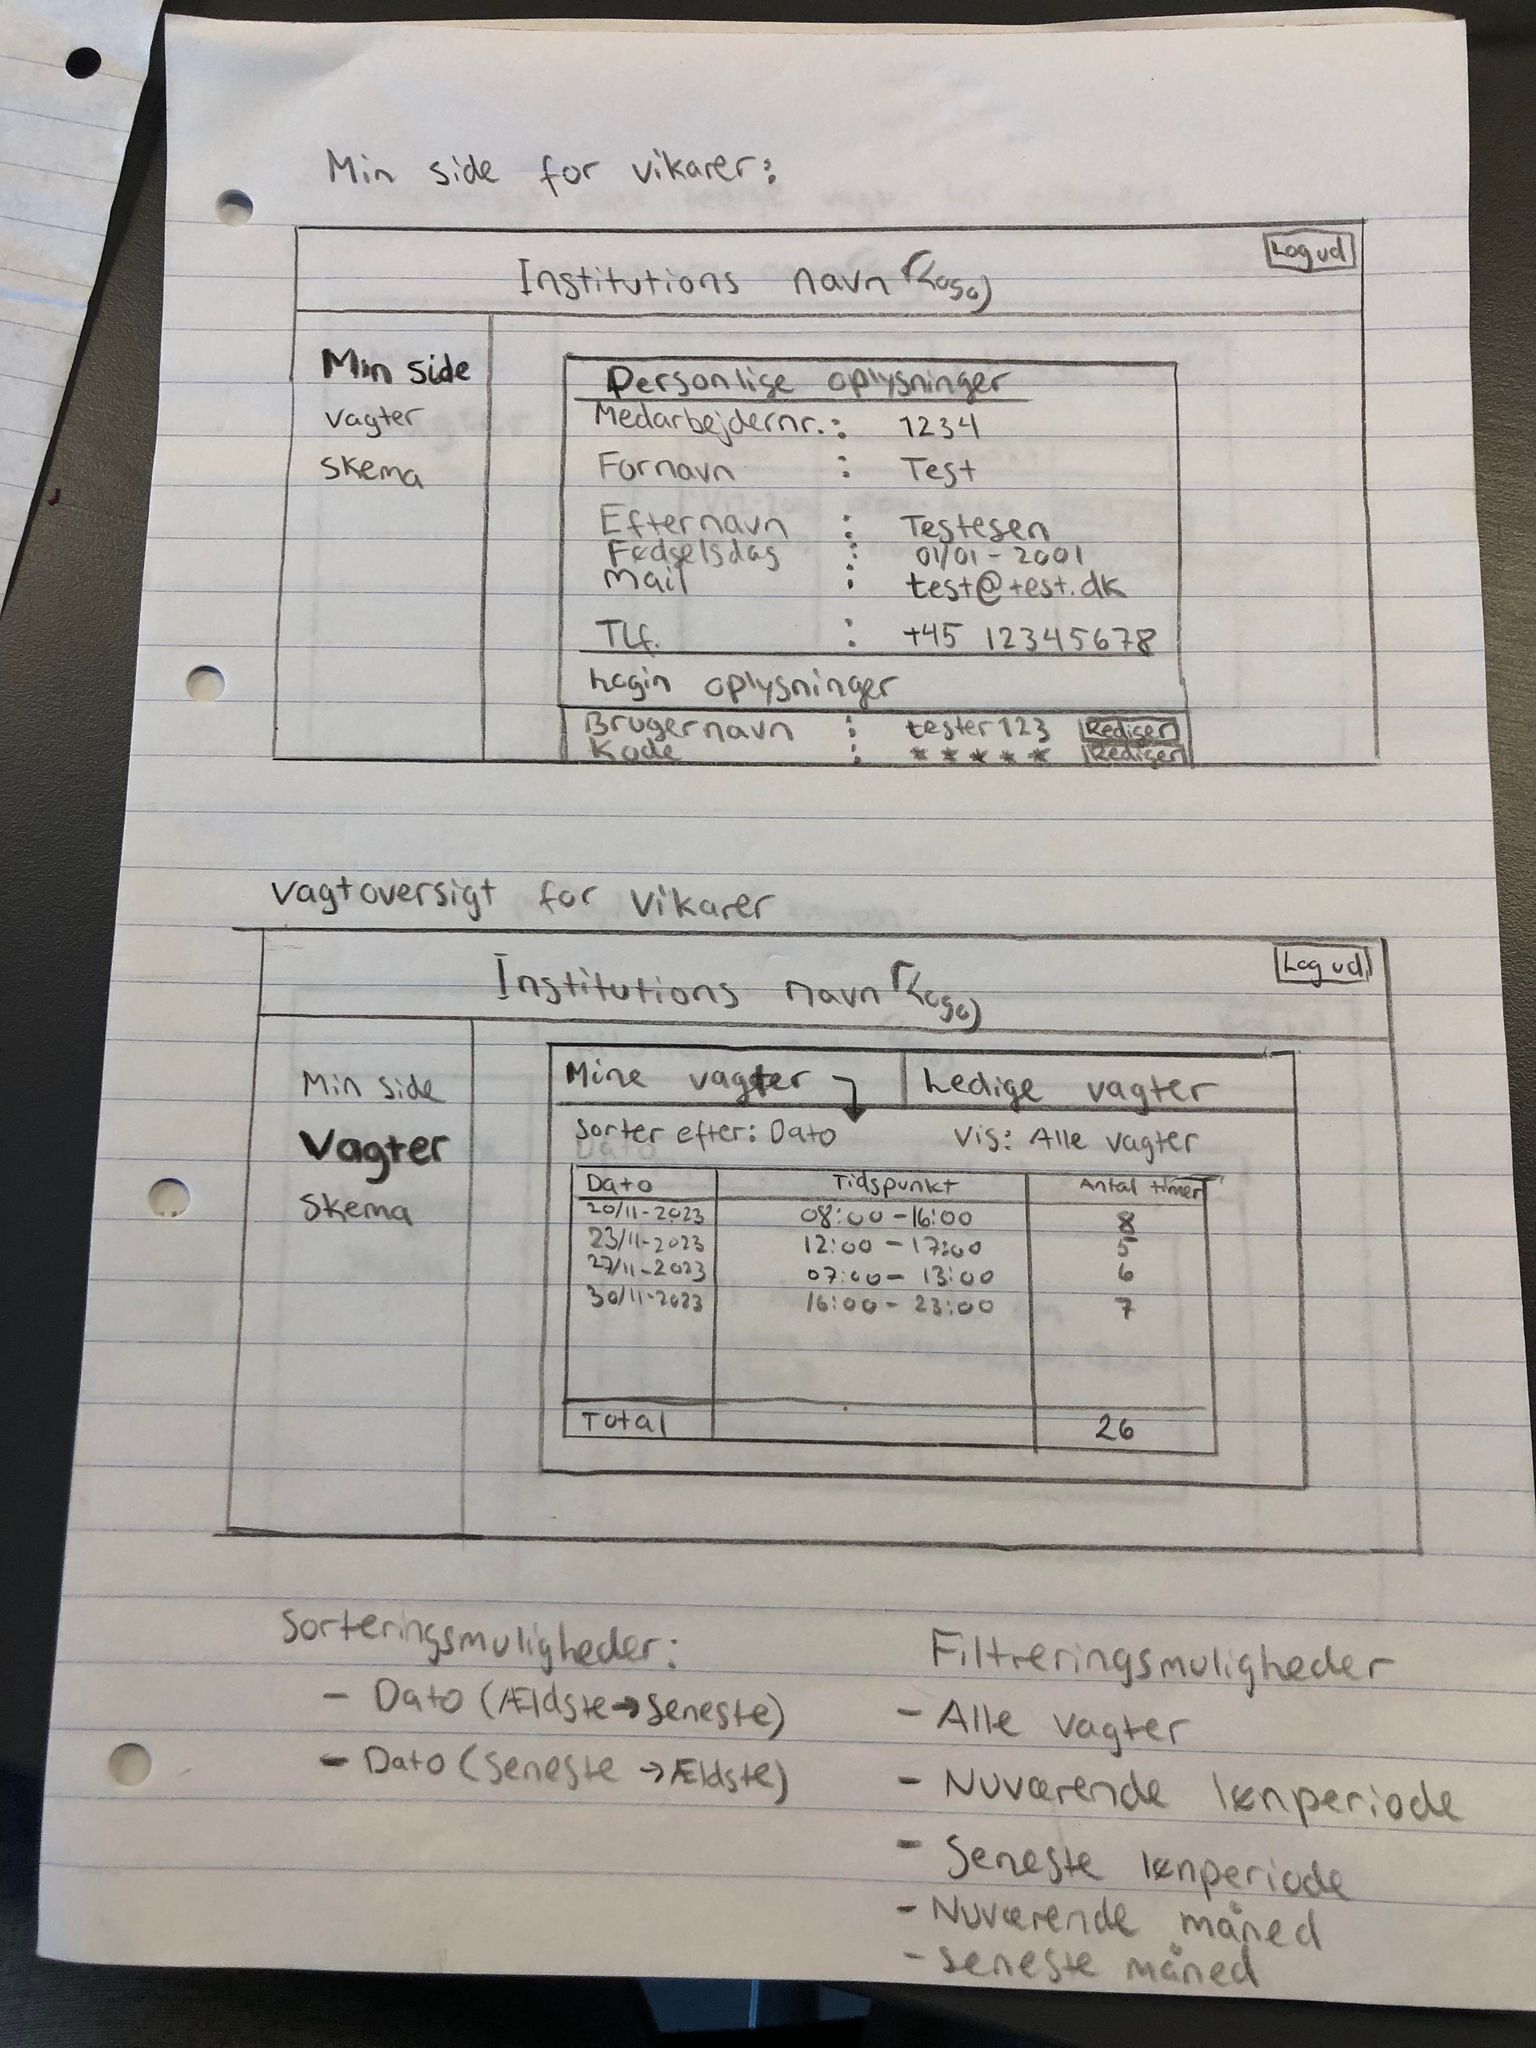 Min side for vikarer:
Log ud
Institutions navn (Logo)
Min side
Vagter
Skema
Personlige oplysninger
Medarbejdernr.: 1234
Fornavn : Test
Efternavn : Testesen
Fødselsdag : 01/01-2001
Mail : test@test.dk
Tlf. : +45 12345678
Login oplysninger
Brugernavn : tester123 Rediger
Kode : ***** Rediger
Vagtoversigt for vikarer
Log ud
Institutions navn (Logo)
Min side
Vagter
Skema
Mine vagter Ledige vagter
Sorter efter: Dato Vis: Alle vagter
Dato Tidspunkt Antal timer
20/11-2023 08:00-16:00 8
23/11-2023 12:00-17:00 5
27/11-2023 07:00-13:00 6
30/11-2023 16:00-23:00 7
Total 26
Sorteringsmuligheder:
- Dato (Ældste→Seneste)
- Dato (Seneste→Ældste)
Filtreringsmuligheder
- Alle vagter
- Nuværende lønperiode
- Seneste lønperiode
- Nuværende måned
- Seneste måned